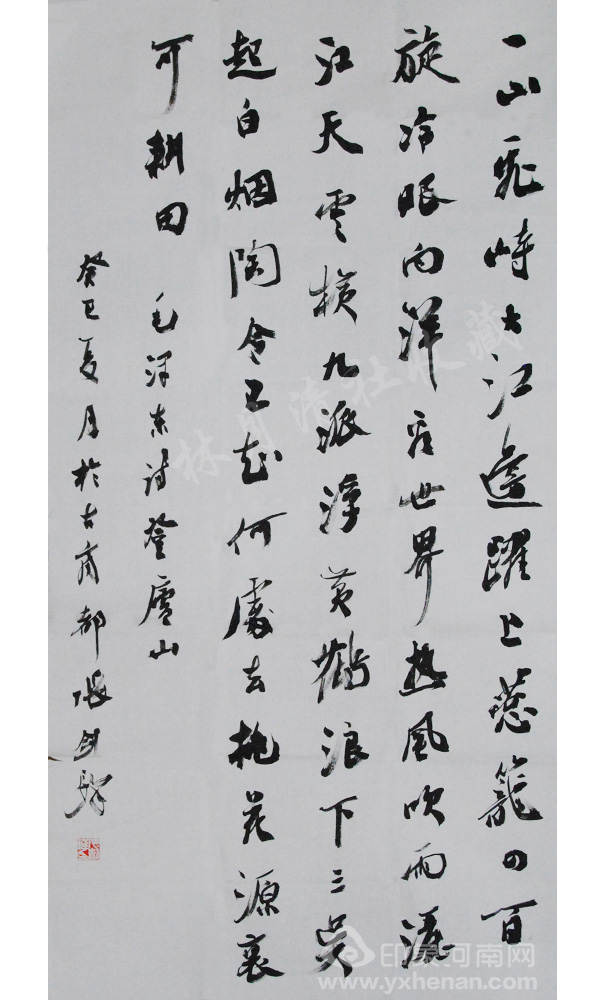 一山飛峙大江邊躍上葱籠四百
旋冷眼向洋看世界热風吹雨灑
江天雲横九派浮黄鶴浪下三吴
起白烟陶令不知何處去桃花源裏
可耕田 毛泽东诗登廬山
癸巳夏月於古商都張剑
印象河南网
www.yxhenan.com